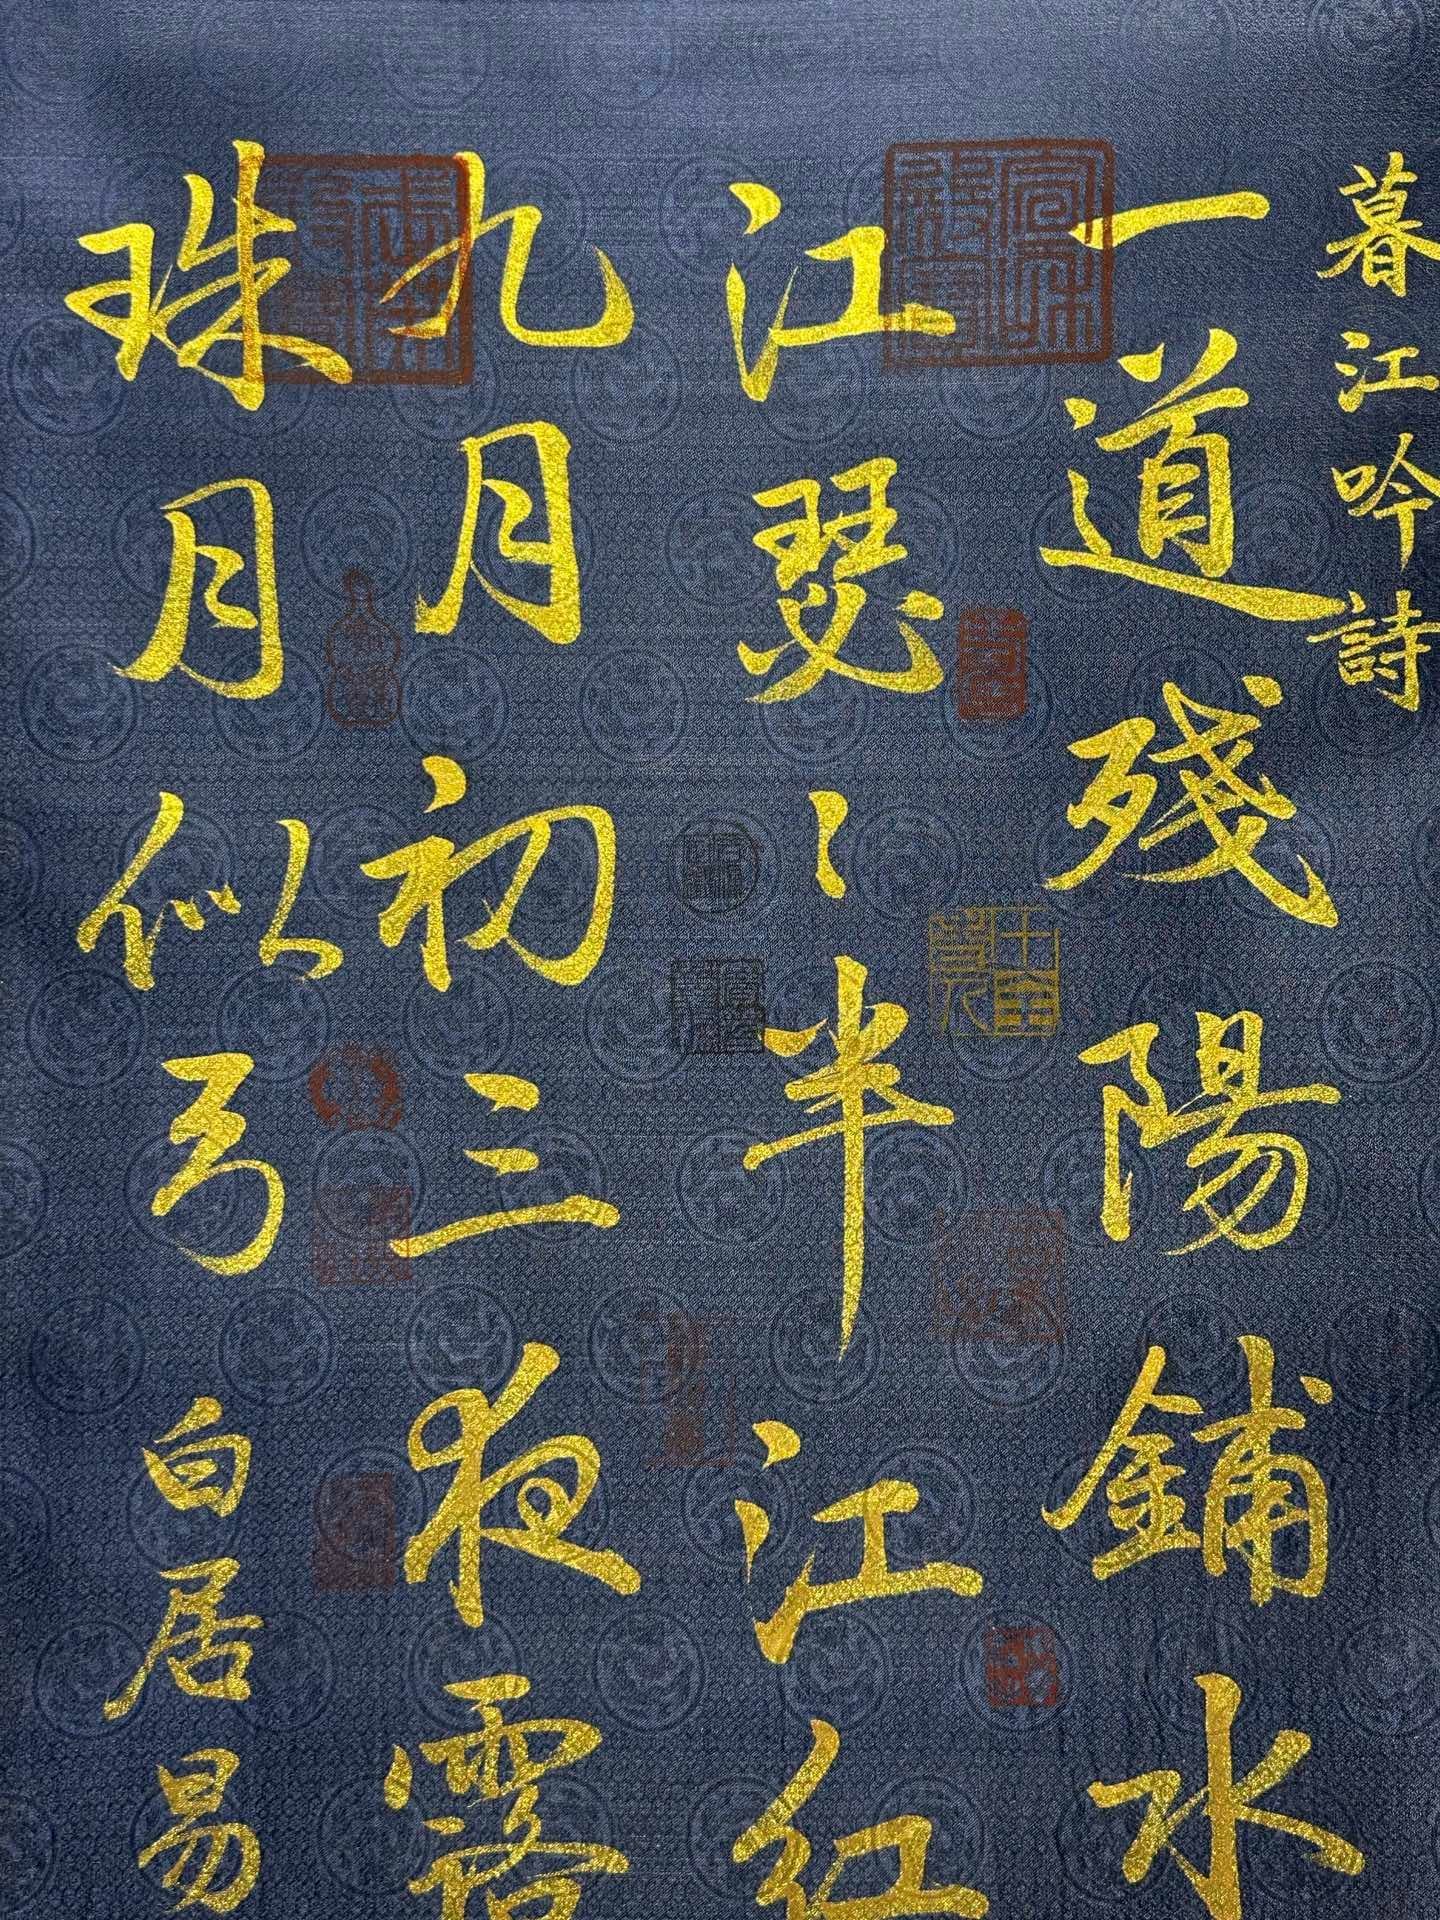 暮江吟詩
一道殘陽鋪水
江瑟〻半江紅
九月初三夜露
珠月似弓
白居易